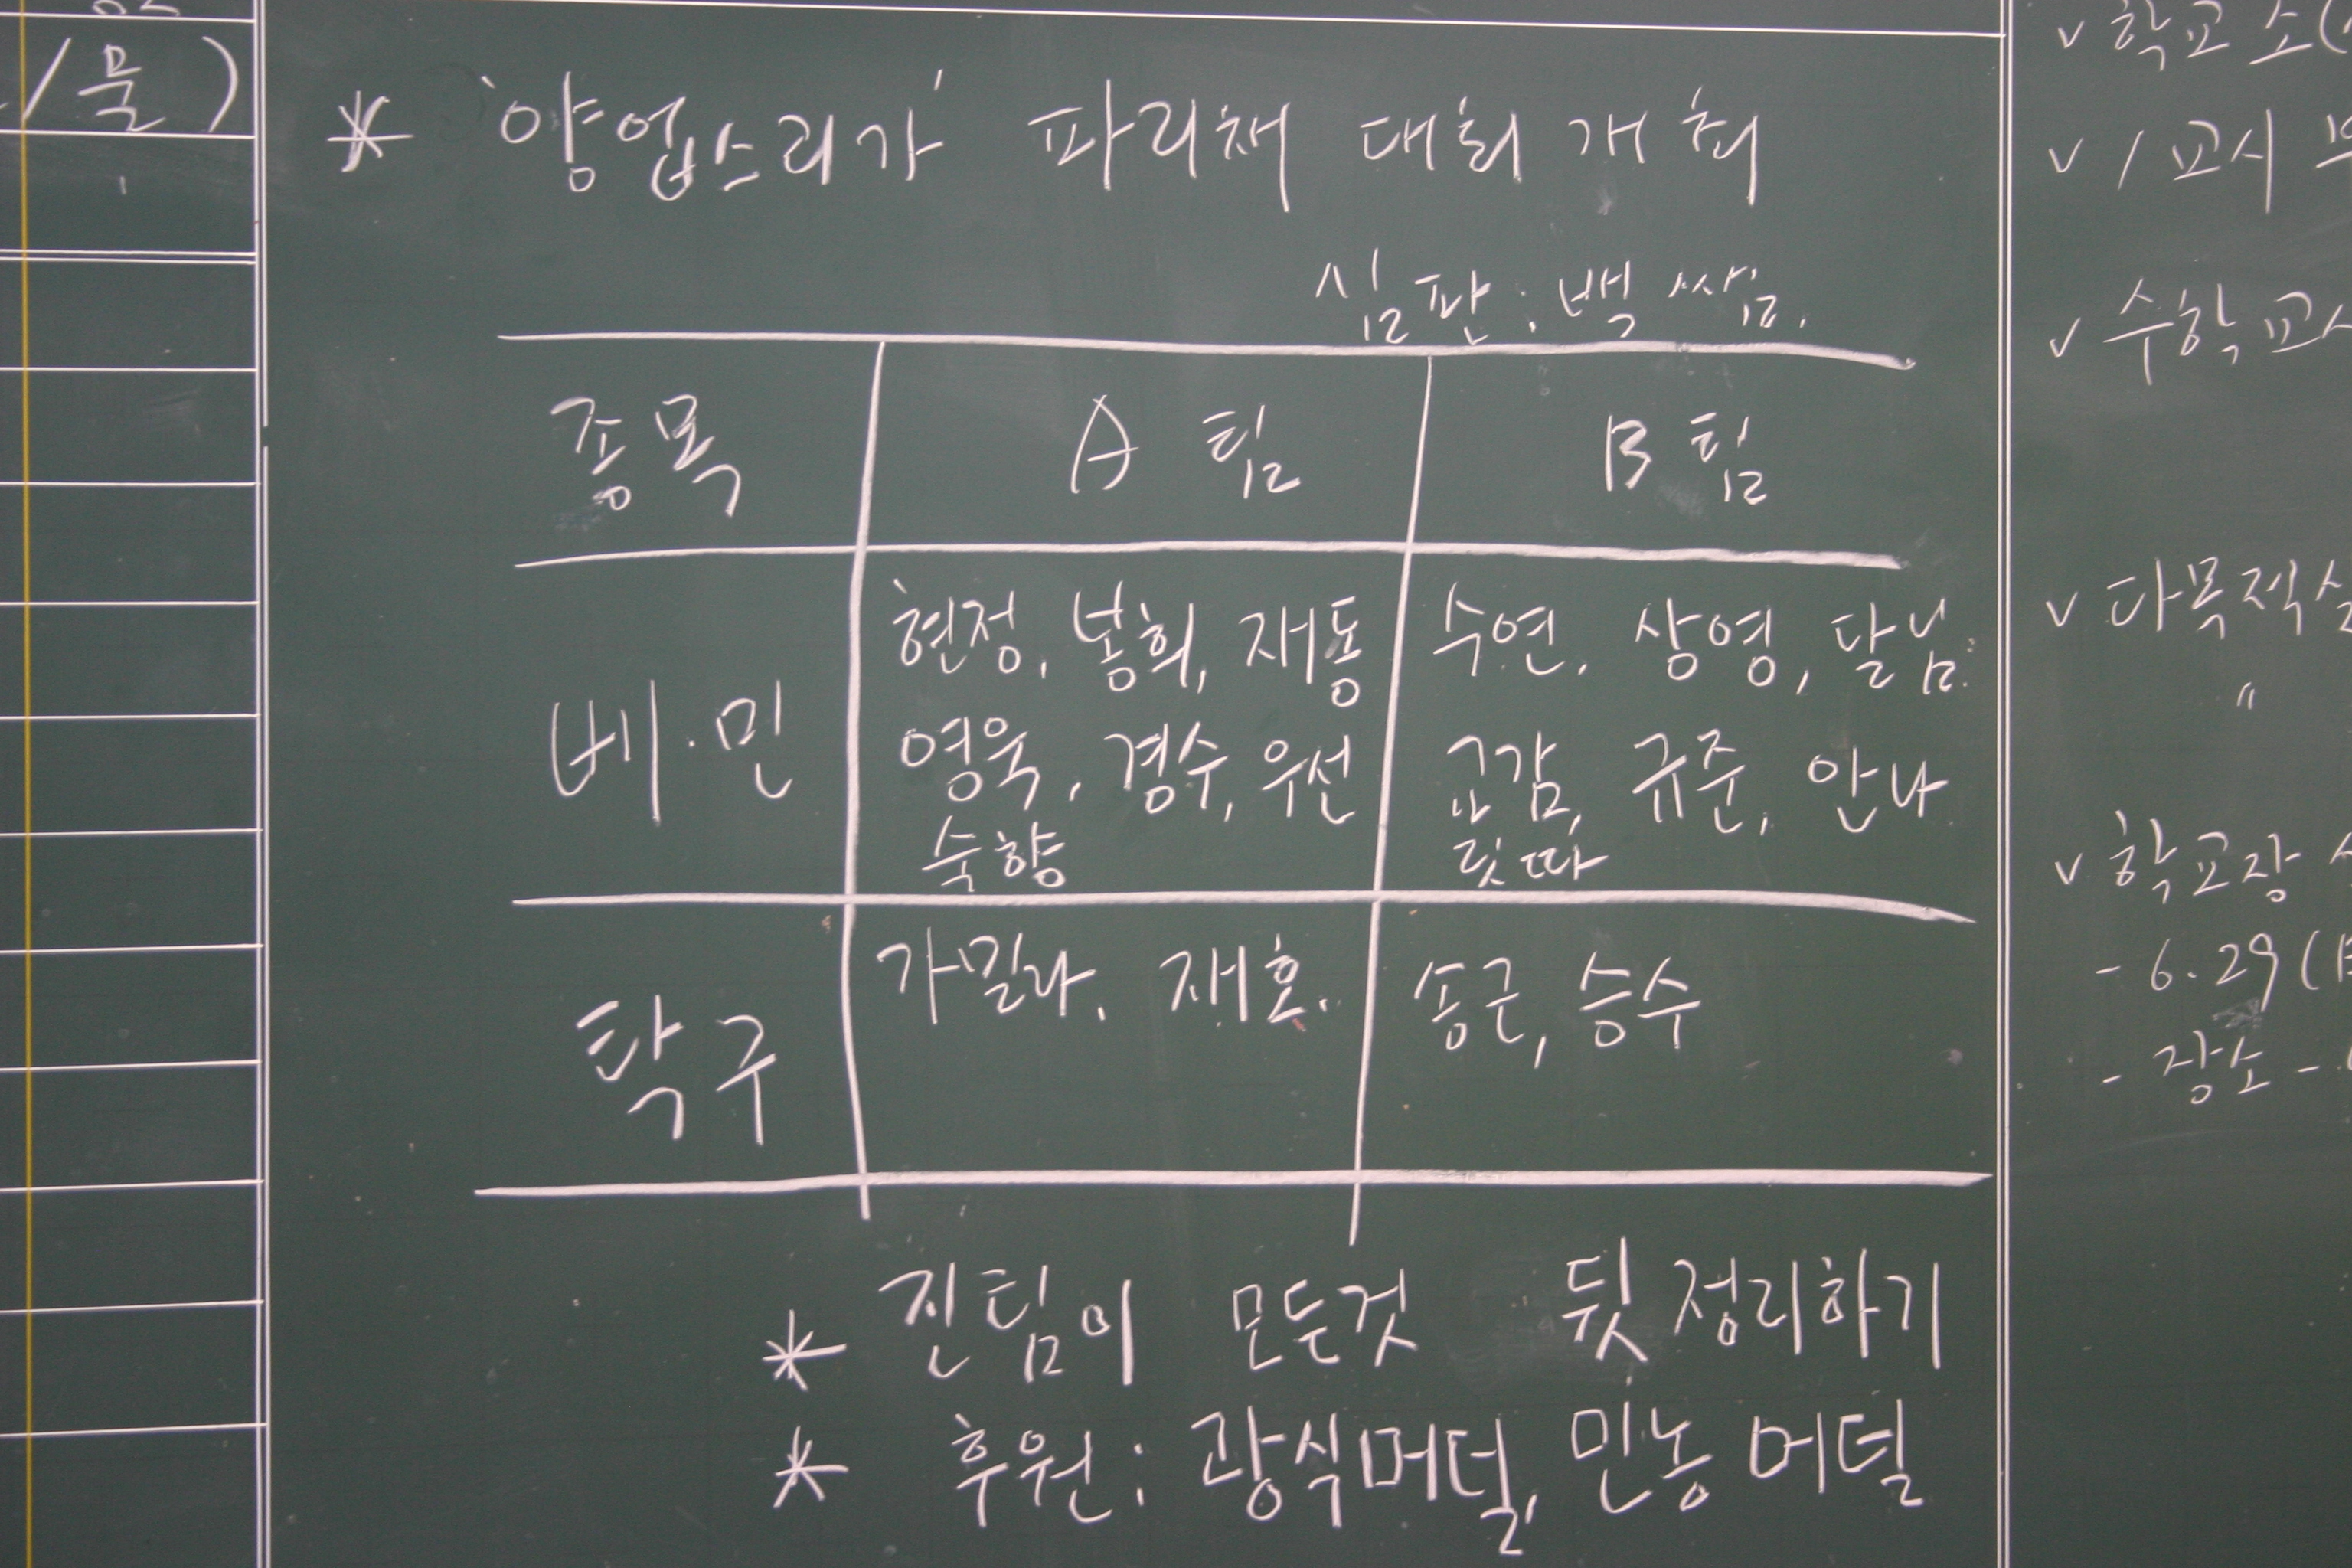 /물)
* '양업스리가' 파리채 대회 개최
심판 : 백쌤.
종목 A 팀 B 팀
베·민
현정, 봉희, 재동
영욱, 경수, 우선
숙향
수연, 상영, 달님.
교감, 규준, 안나
릿따
탁구
가밀라, 재호.
송근, 승수
* 진팀이 모든것 뒷정리하기
* 후원 : 광식머털, 민농 머털
v 학교 소(
v 1교시
v 수학교
v 다목적실
"
v 학교장
- 6.29(
- 장소 -